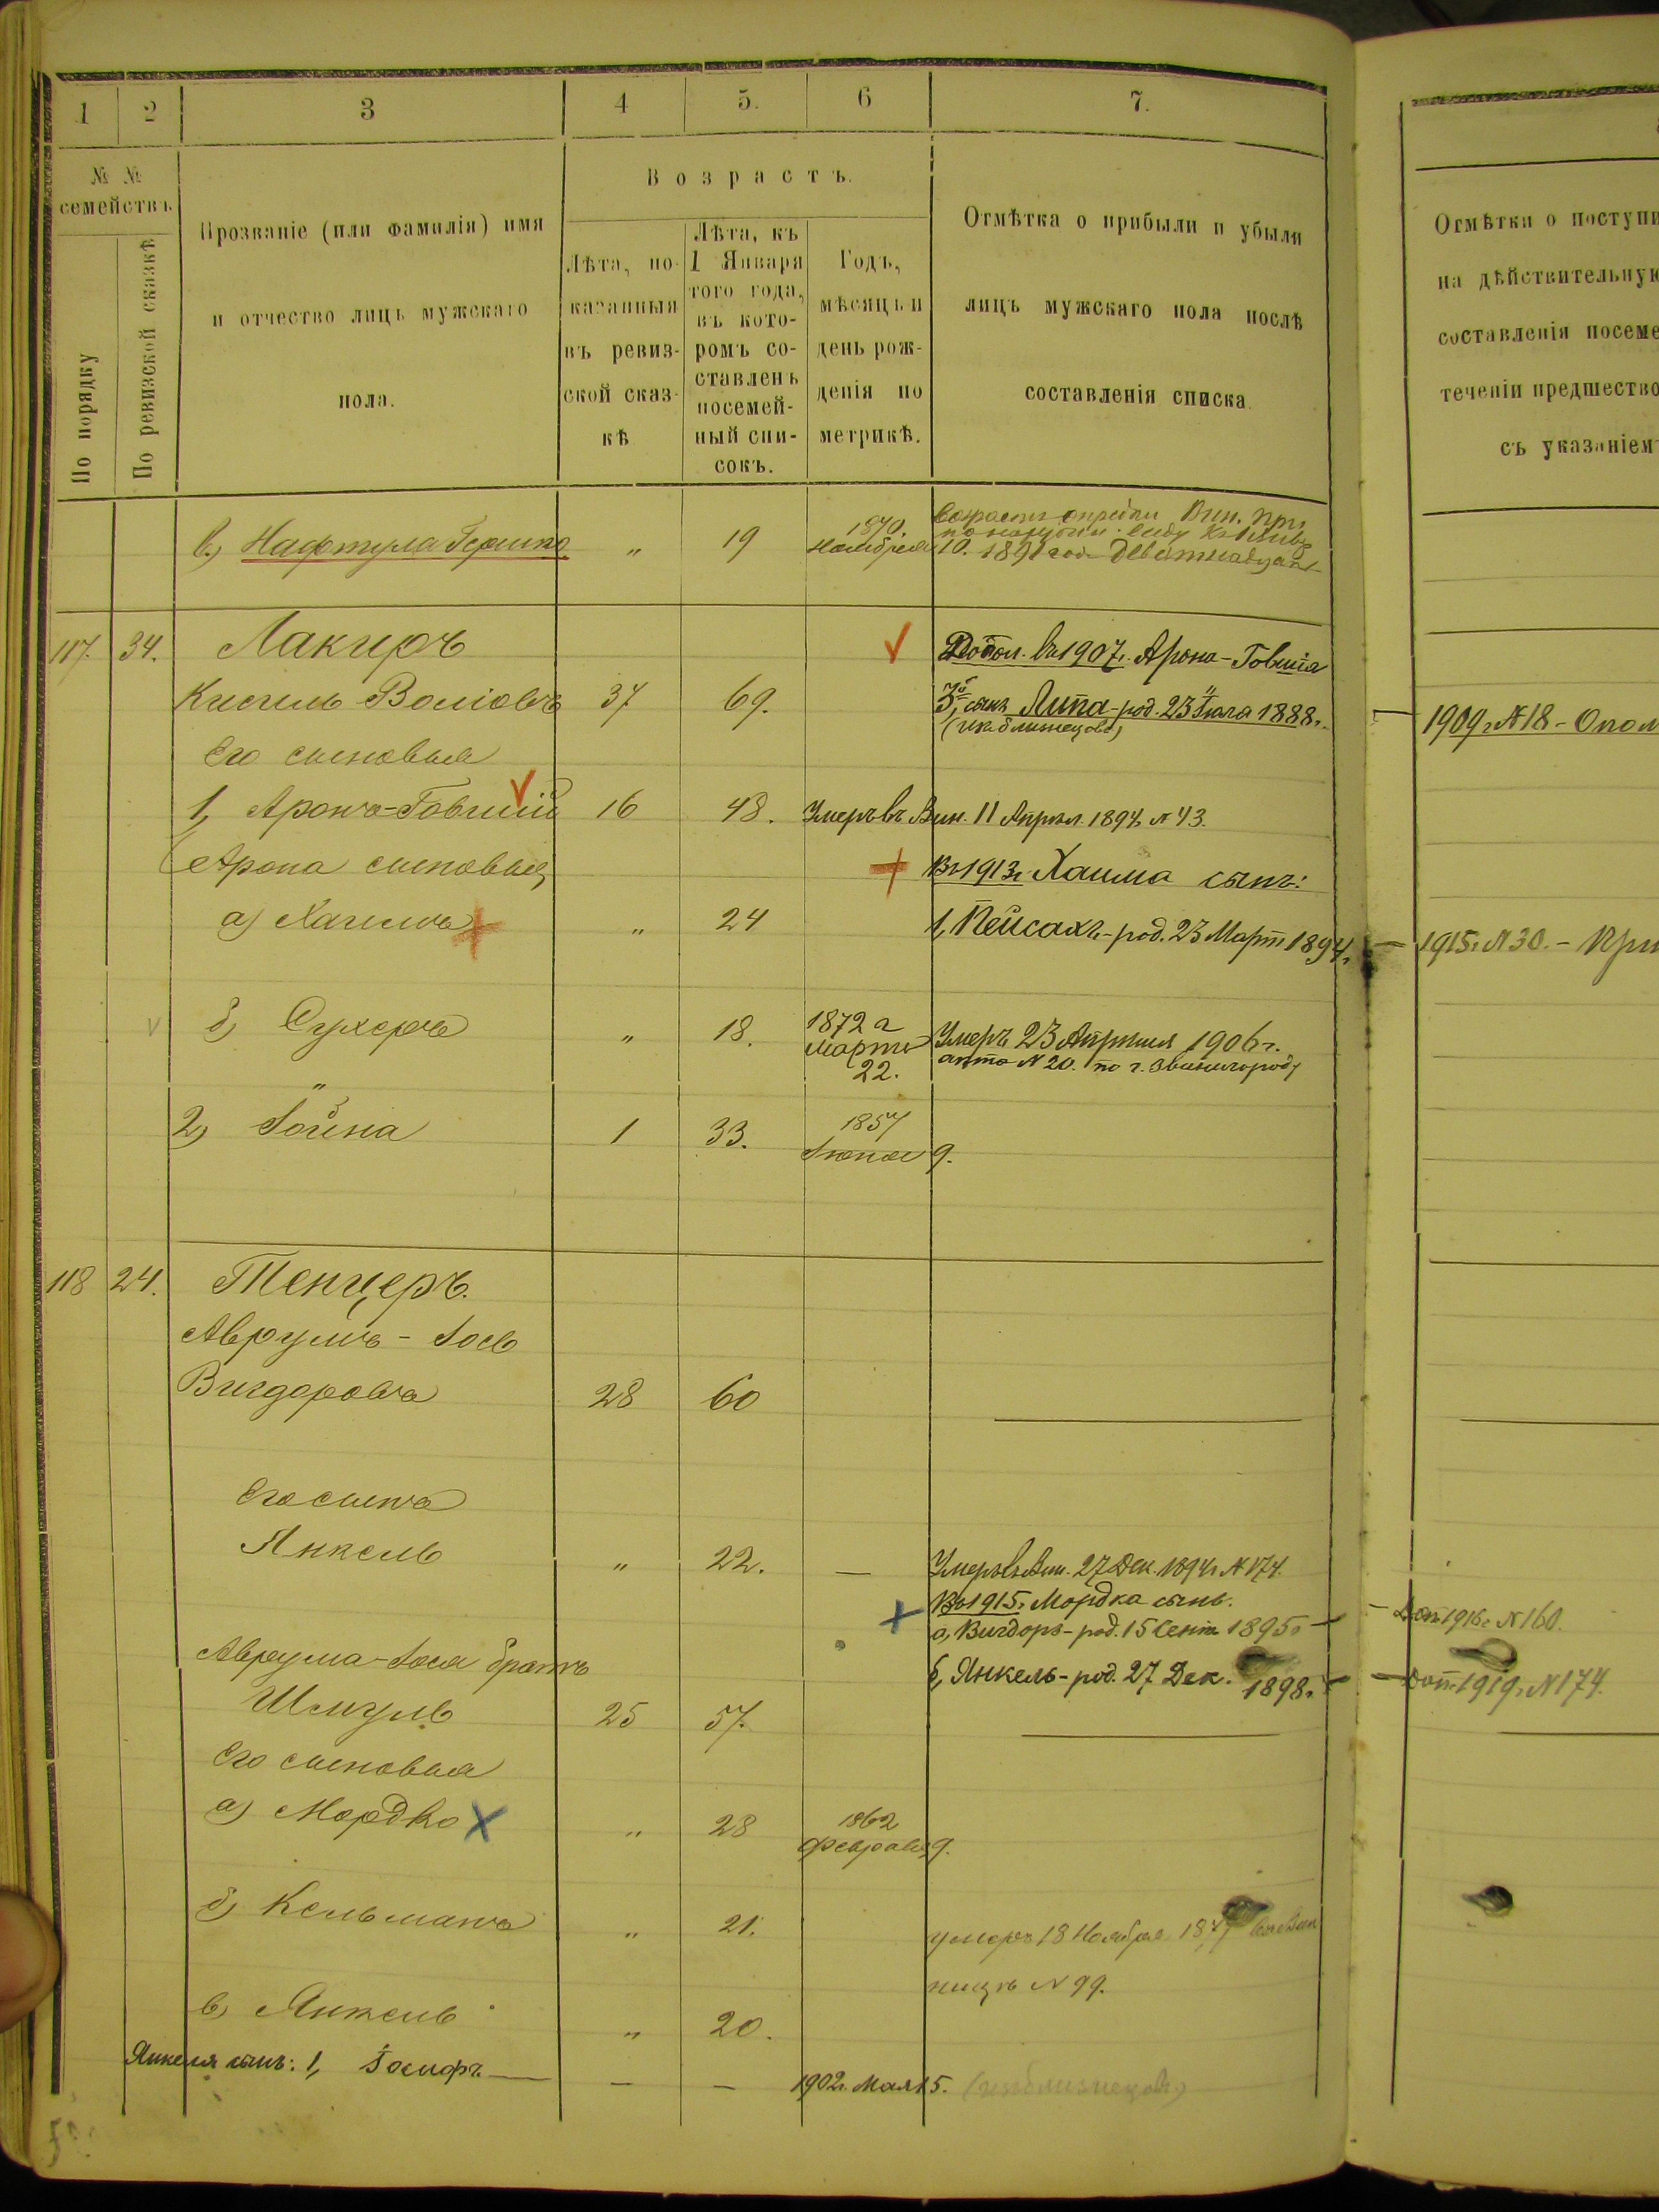 1 2 3 4 5. 6 7.
№ №
семействъ
По порядку
По ревизской сказкѣ
Прозваніе (или фамилія) имя
и отчество лицъ мужскаго
пола.
Возрастъ.
Лѣта, по-
казанныя
въ ревиз-
ской сказ-
кѣ
Лѣта, къ
1 Января
того года,
въ кото-
ромъ со-
ставленъ
посемей-
ный спи-
сокъ.
Годъ,
мѣсяцъ и
день рож-
денія по
метрикѣ.
Отмѣтка о прибыли и убыли
лицъ мужскаго пола послѣ
составленія списка.
Отмѣтки о поступи
на дѣйствительную
составленія посеме
теченіи предшество
съ указаніем
в) Нафтула Гершко „ 19 1870. Ноября 10. 1891 год
117. 34. Лакиръ
Добол. въ 1907 г. Арона-Говшія
Кисиль Воліовъ 37 69.
3й сынъ Липа - род. 23 Іюля 1888 г.
(изъ близнецовъ)
1909 г. № 18 - Опол
Его сыновья
1, Аронъ-Говшій 16 48. Умеръ въ Вин. 11 Апрѣл. 1894 № 43.
Арона сыновья,
Въ 1913 г. Хаима сынъ:
а) Хаимъ „ 24
1, Пейсахъ - род. 23 Март 1894 г.
1915 г. № 30. - При
б) Сухеръ „ 18. 1872 г
Марта
22.
Умеръ 23 Апрѣля 1906 г.
актъ № 20. по г. Звенигородк
2) Іойна 1 33. 1857
Іюня 9.
118 24. Тенцеръ.
Аврумъ - Іось
Вигдоровъ 28 60
Его сынъ
Янкель „ 22. — Умеръ въ Вин. 27 Дек. 1894 г № 174.
Въ 1915 г. Мордка сынъ.
а, Вигдоръ - род. 15 Сент 1895 г
1916 г № 160.
Аврума-Іося братъ
б, Янкель - род. 27 Дек. 1898 г.
1919 г. № 174.
Шмуль 25 57.
Его сыновья
а) Мордко „ 28 1862
Февраля 9.
б) Кельманъ „ 21. умеръ 18 Ноября
№ 99.
в) Янкель „ 20.
Янкеля сынъ: 1, Іосифъ — — — 1902 г. Мая 15. (изъ близнецовъ)